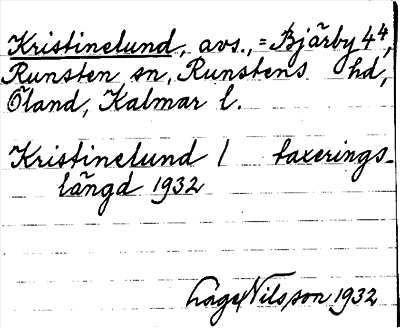 Kristinelund, avs., = Bjärby 4⁴,
Runsten sn, Runstens hd,
Öland, Kalmar l.
Kristinelund / taxerings-
längd 1932
Låge Nilsson 1932